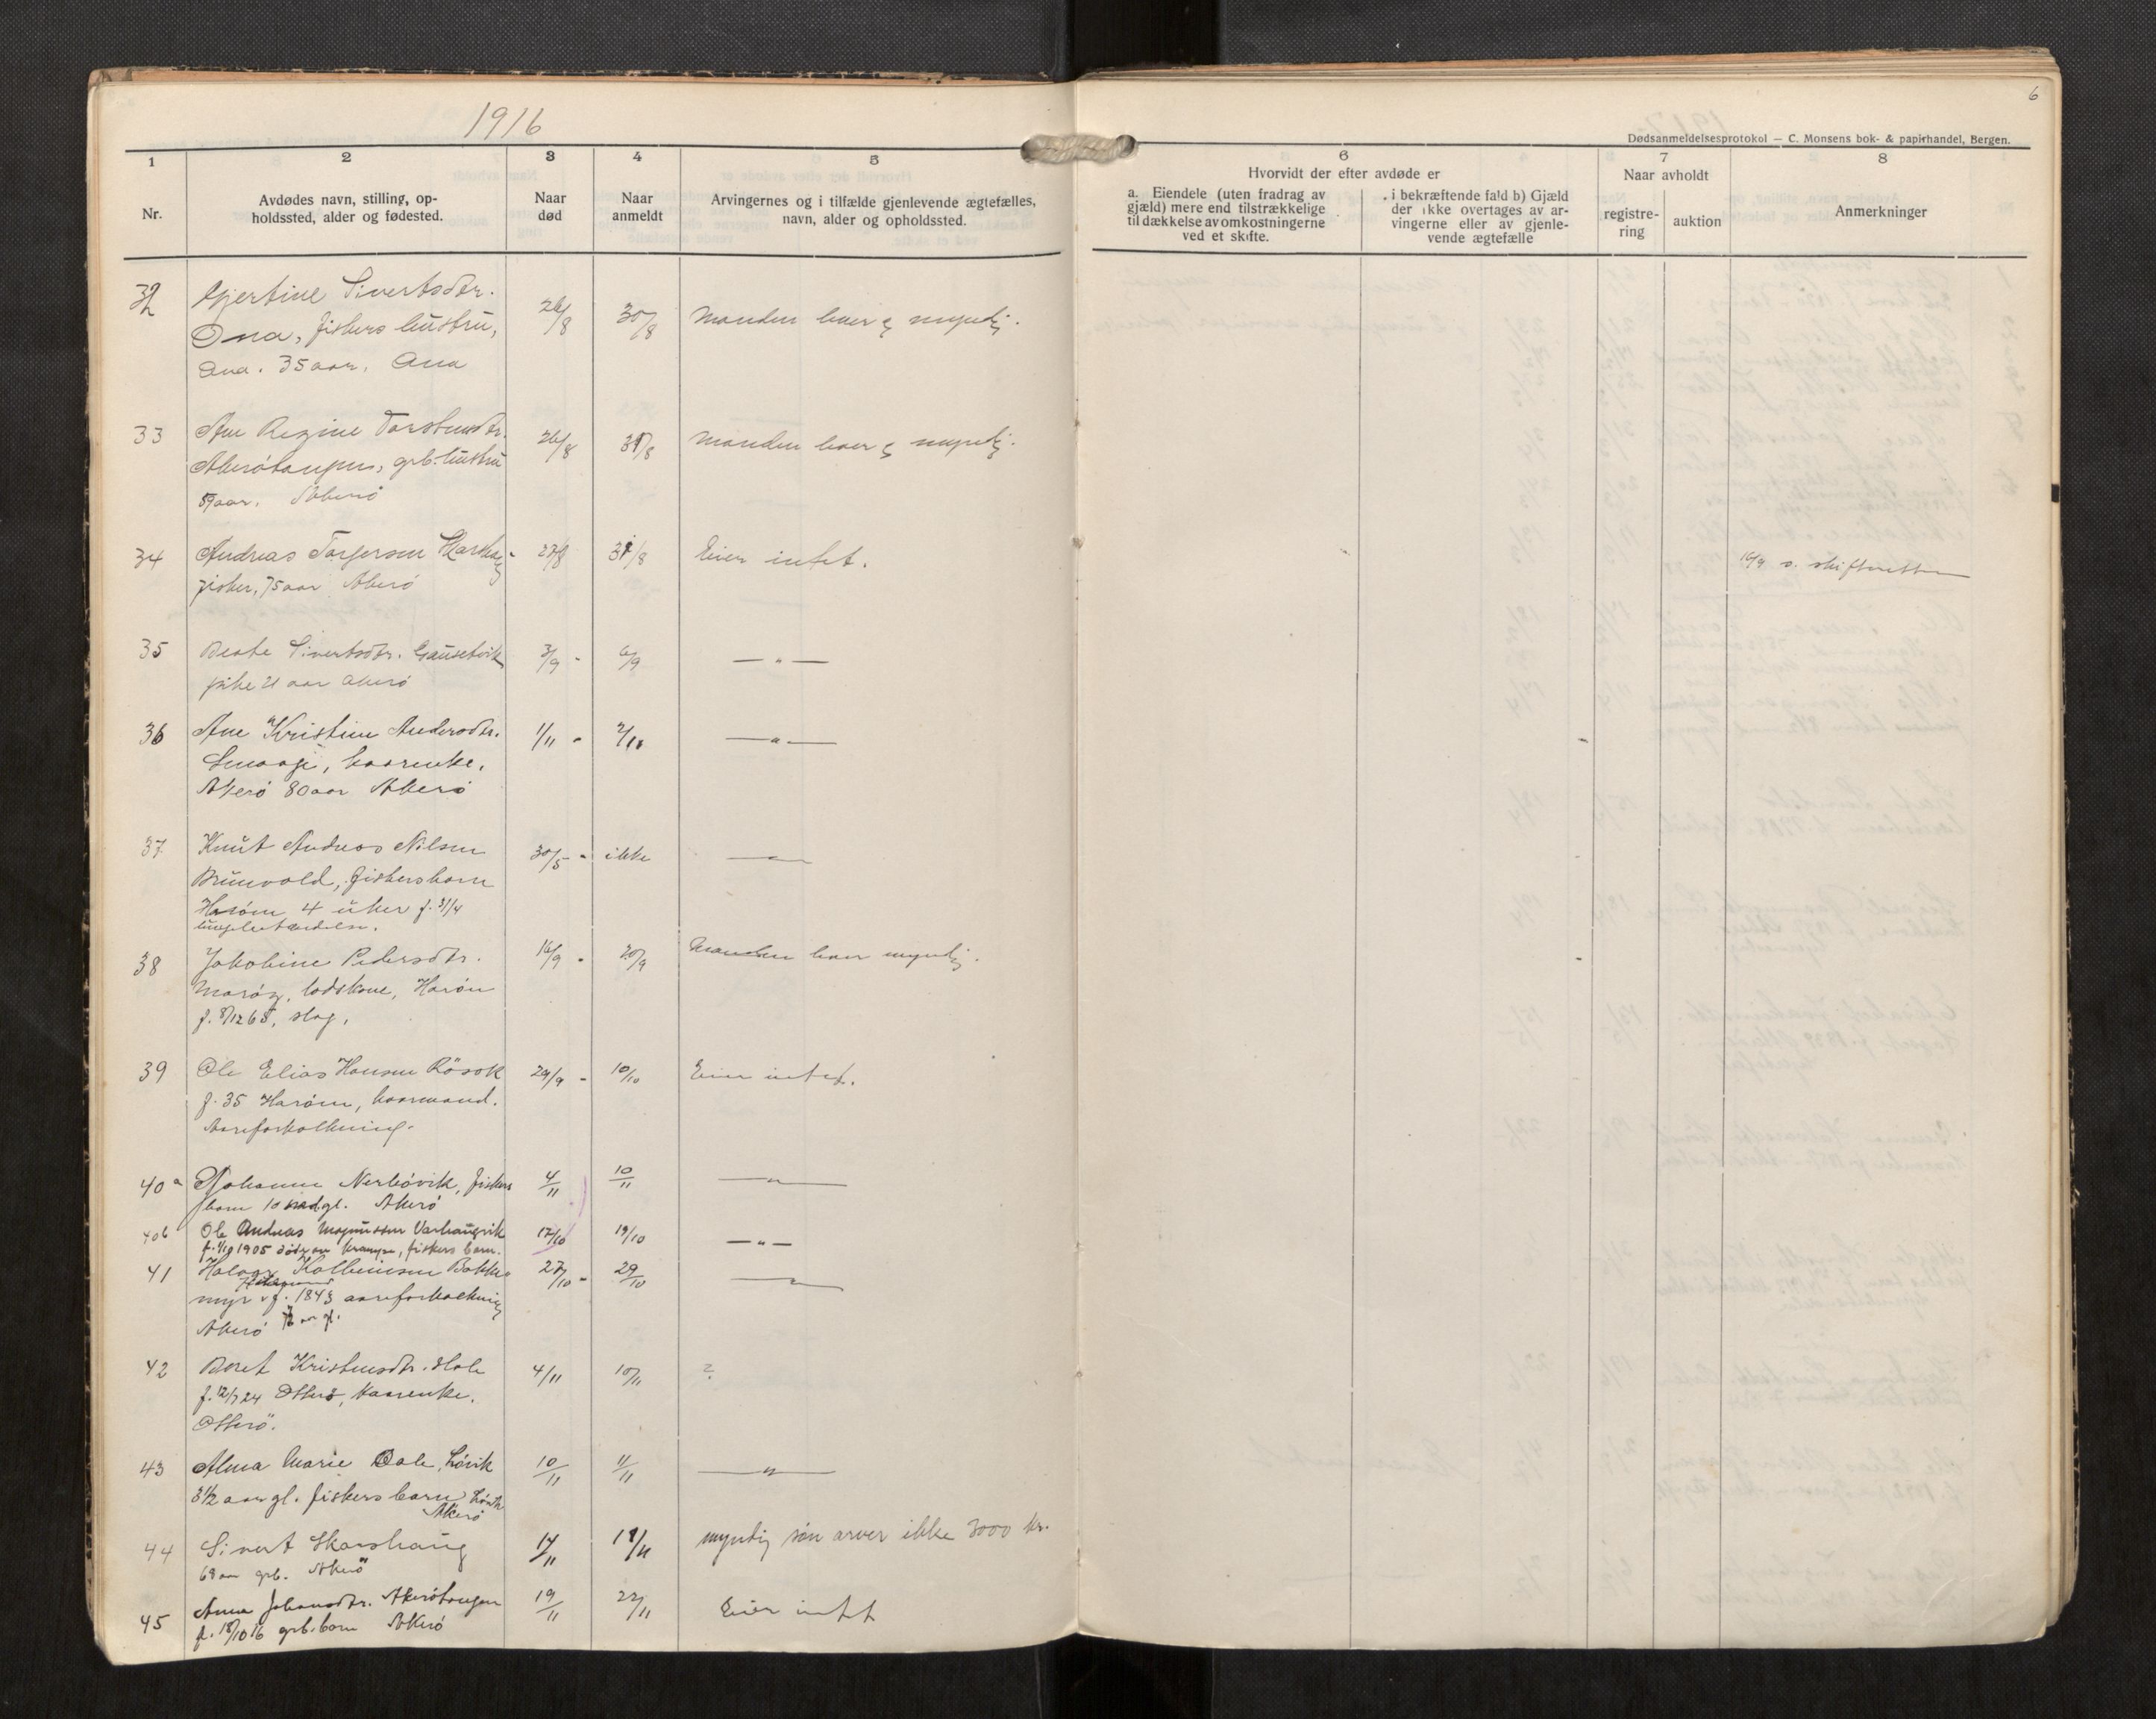 1916
6
Dødsanmeldelsesprotokol — C. Monsens bok- & papirhandel, Bergen.
1 2 3 4 5 6 7 8
Nr.
Avdødes navn, stilling, op-
holdssted, alder og fødested.
Naar
død
Naar
anmeldt
Arvingernes og i tilfælde gjenlevende ægtefælles,
navn, alder og opholdssted.
Hvorvidt der efter avdøde er
a. Eiendele (uten fradrag av
gjæld) mere end tilstrækkelige
til dækkelse av omkostningerne
ved et skifte.
i bekræftende fald b) Gjæld
der ikke overtages av ar-
vingerne eller av gjenle-
vende ægtefælle
Naar avholdt
registre-
ring
auktion
Anmerkninger
32 Gjertine Sivertsdtr. 26/8 30/8 Manden haver myndig.
Ona, fiskers hustru,
Ona. 35 aar. Ona
33 Ane Regine Torstensdtr. 26/8 31/8 Manden haver myndig.
Akerötangen, grb. hustru
59 aar. Akerö
34 Andreas Torgersen 27/8 31/8 Eier intet. 16/9 s. skifteretten
fisker, 75 aar Akerö
35 Beate Sivertsdtr. Gausetvik 3/9 - 6/9 — " —
pike 21 aar Akerö
36 Ane Kristine Andersdtr. 1/11 - 2/11 — " —
Smaage, kaarenke.
Akerö 80 aar Akerö
37 Knut Andreas Nilsen 30/5 - ikke — " —
Brunvold, fiskersbarn
Haröen 4 uker f. 31/4
lungebetændelse.
38 Jakobine Pedersdtr. 16/9 - 20/9 Manden haver myndig.
Maröy, lodskone, Haröen
f. 8/12 68, slag.
39 Ole Elias Hansen Rösok 29/9 - 10/10 Eier intet.
f. 35 Haröen, kaarmand.
Aareforkalkning.
40a Johanne Nerbövik, fiskers 4/11 10/11 — " —
barn 10 mnd. gl. Akerö
40b Ole Andreas Magnussen Varhaugvik 17/10 19/10 — " —
f. 1905 döde av krampe, fiskers barn.
41 Halvor Kolbeinsen Bakke 27/10 - 29/10 — " —
myr f. 1843 aareforkalkning
Akerö aar gl.
42 Beret Kristensdtr. Hole 4/11 10/11 ?
f. 12/7 24 Otterö, kaarenke.
Otterö.
43 Alma Marie Dale, Lövik 10/11 11/11 — " —
3 1/2 aar gl. fiskers barn Lövik
Akerö
44 Sivert Skarshaug 14/11 18/11 myndig sön arver ikke 3000 kr.
68 aar grb. Akerö
45 Anna Johansdtr. Akerötangen 19/11 22/11 Eier intet
f. 18/10 16 grb. barn Akerö